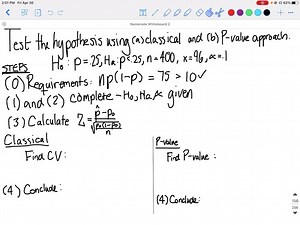 2:01 PM Fri Apr 26
Test the hypothesis using (a) classical and (b) P-value approach.
H₀: p=.25, Ha: p<.25, n=400, x=96, α=.1
STEPS
(0) Requirements: np(1-p) = 75 > 10 ✓
(1) and (2) complete - H₀, Ha, α given
(3) Calculate Z = p̂-p₀ / √(p₀(1-p₀)/n)
Classical
Find CV:
(4) Conclude:
P-value
Find P-value:
(4) Conclude: